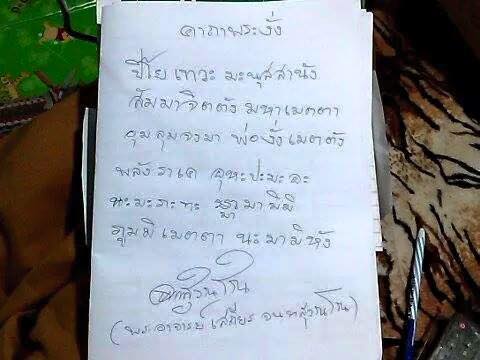 คาถาพระงั่ง
ปิโย เทวะ มะนุสสานัง
สัมมาจิตตัง มหาเมตตา
อุมลุมจงมา พ่องั่งเมตตัง
พลังราเค อุหะปะมะอะ
นะมะราชะ มามีมี
ภุมมิเมตตา นะมามิหัง
(พระอาจารย์ เสถียร จนฺทสุวณฺโณ)